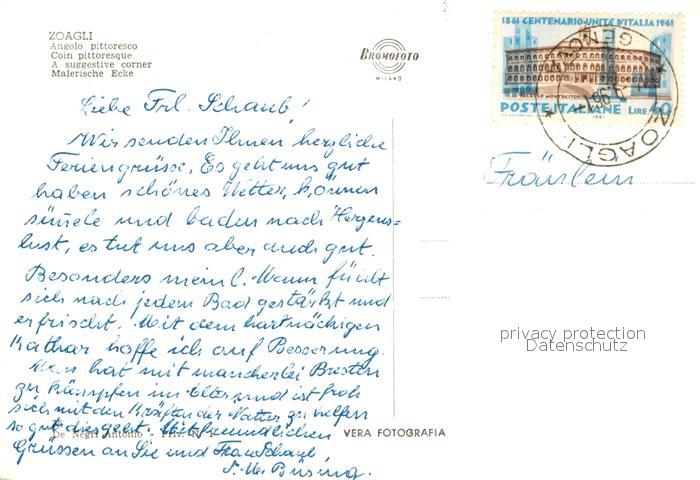 ZOAGLI
Angolo pittoresco
Coin pittoresque
A suggestive corner
Malerische Ecke
BROMOFOTO
MILANO
1861 CENTENARIO UNITÀ D'ITALIA 1961
PALAZZO MONTECITORIO
POSTE ITALIANE LIRE 40
1961
ZOAGLI
GENOVA
Liebe Frl. Schaub!
Wir senden Ihnen herzliche
Feriengrüsse. Es geht uns gut
haben schönes Wetter, können
sünele und baden nach Herzens-
lust, es tut uns aber auch gut.
Besonders mein l. Mann fühlt
sich nach jedem Bad gestärkt und
erfrischt. Mit dem hartnäckigen
Kathar hoffe ich auf Besserung.
Man hat mit mancherlei Bresten
zu kämpfen im Alter und ist froh
sich mit den Kräften der Natur zu helfen
so gut dies geht. Mit freundlichen
Grüssen an Sie und Frau Schaub
Büsing.
Fräulein
privacy protection
Datenschutz
De Negri Antonio - Priv.
VERA FOTOGRAFIA